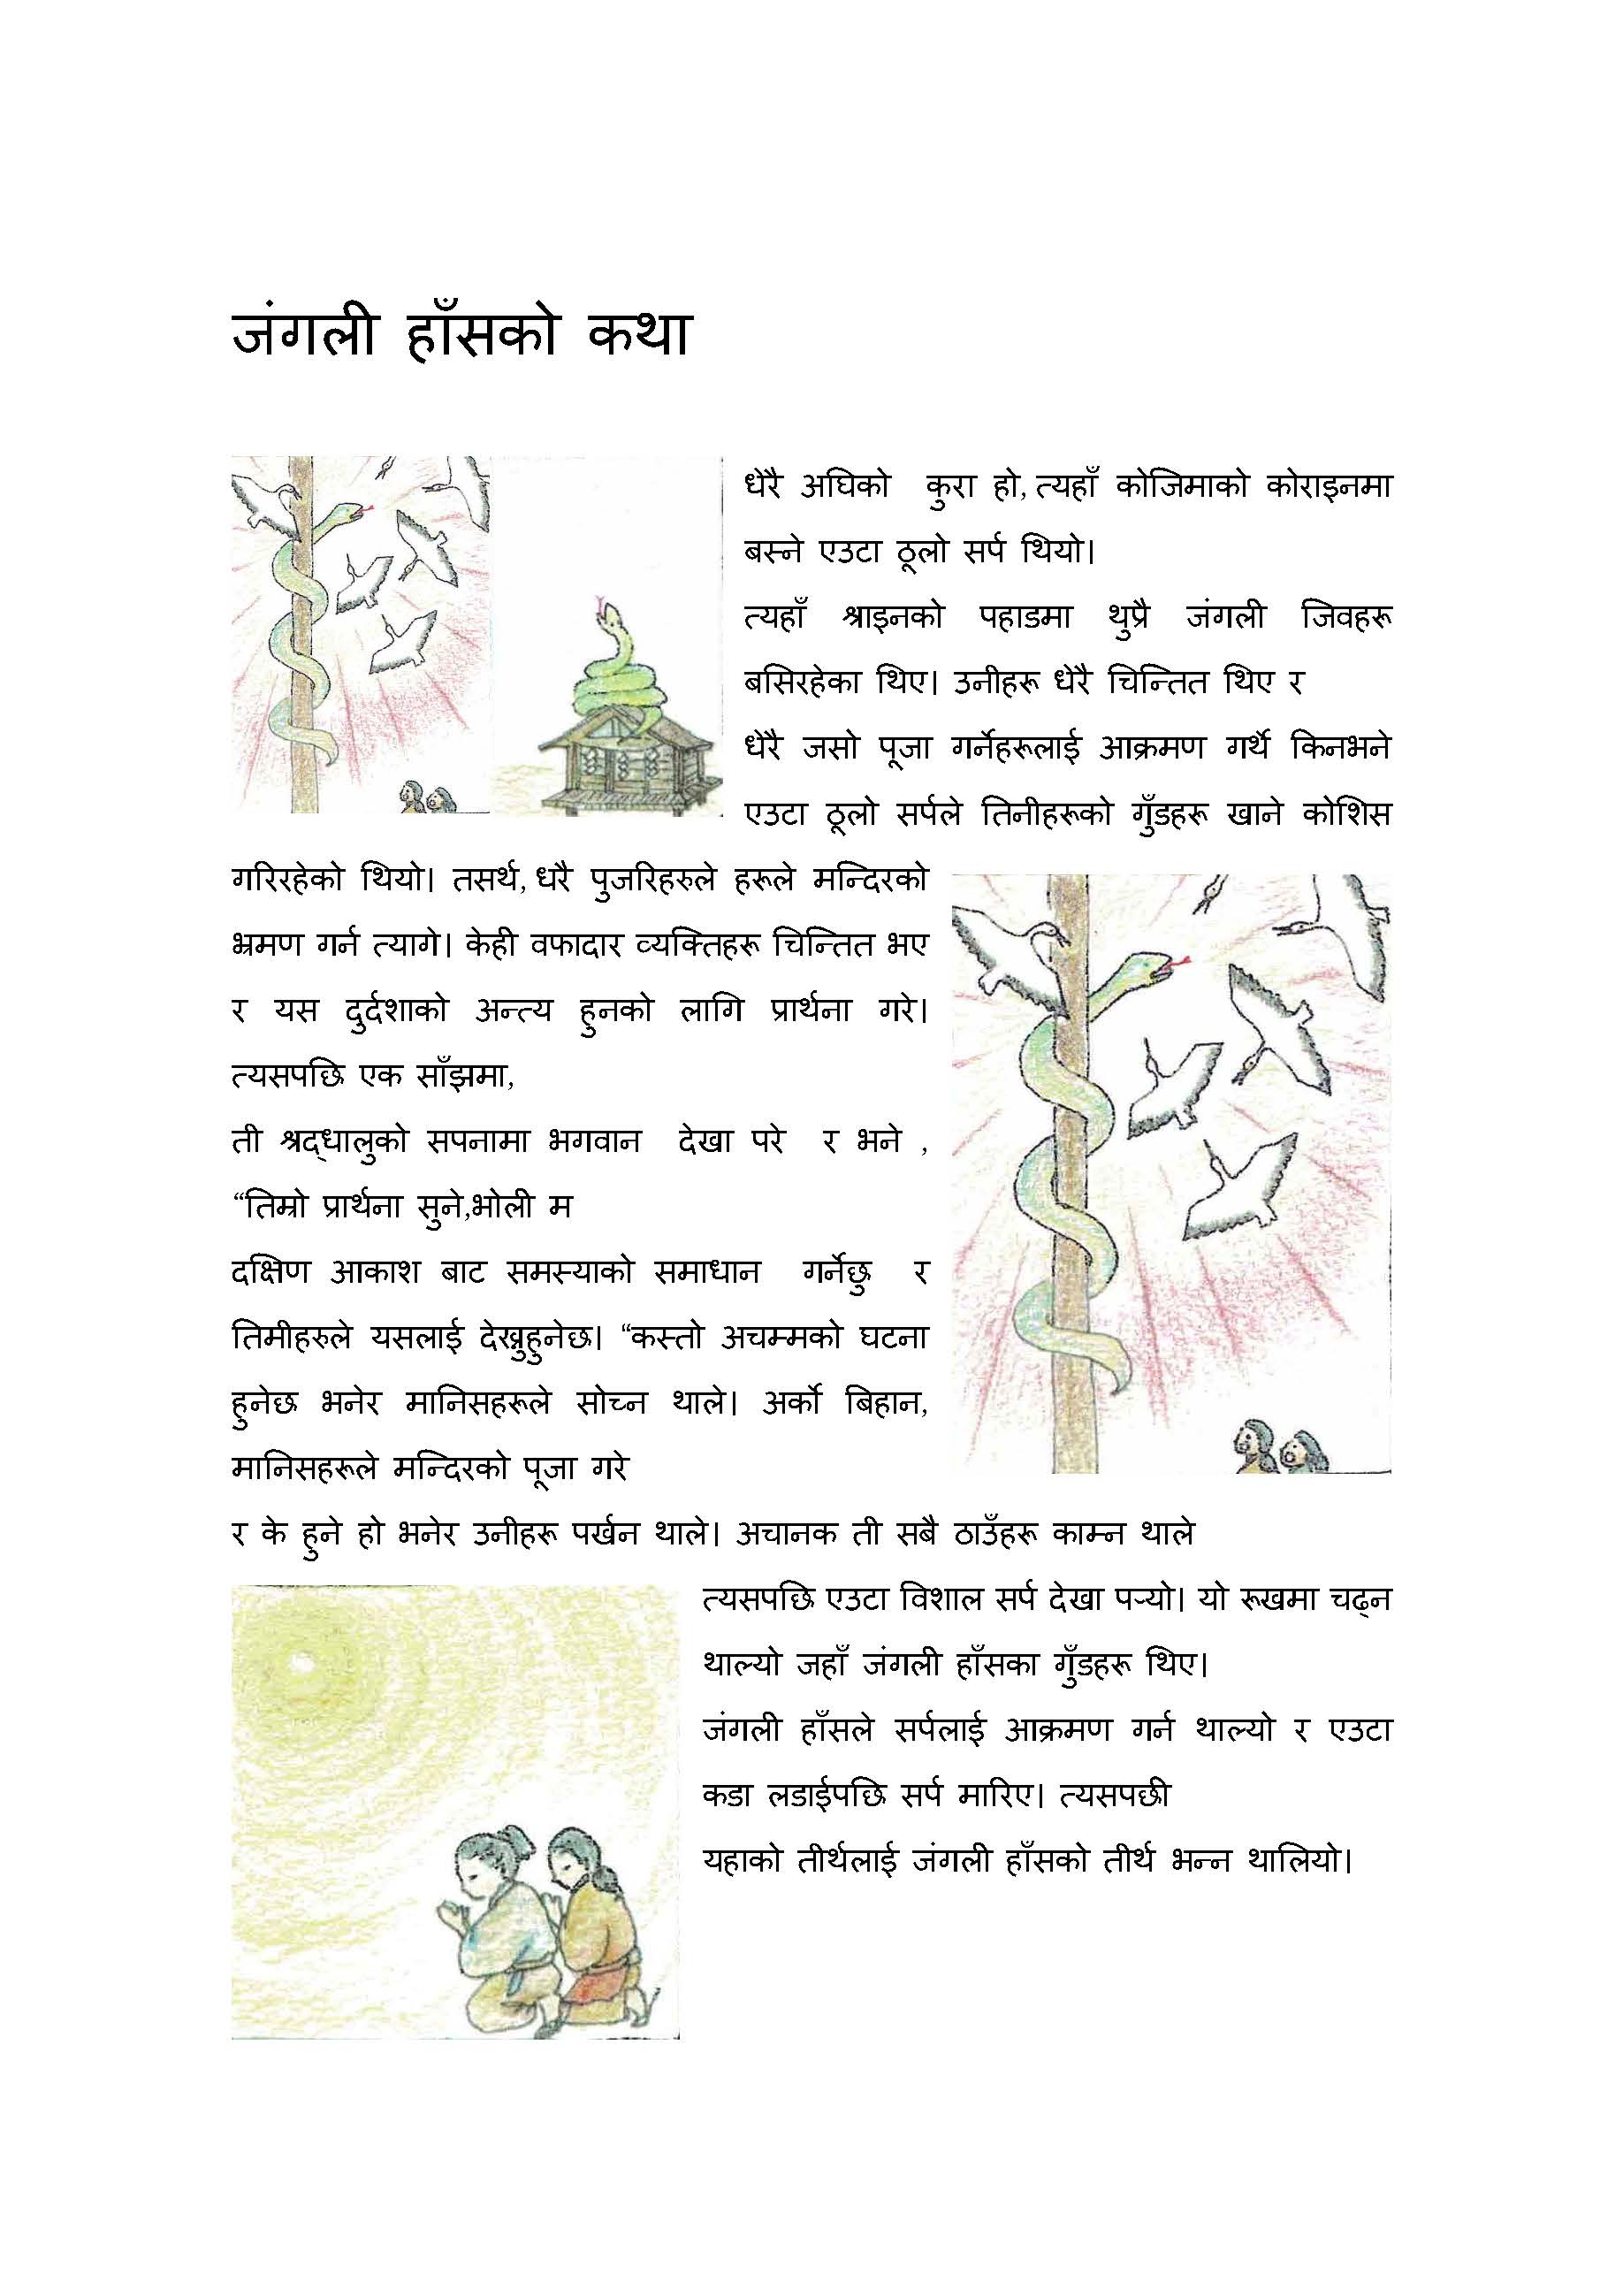 जंगली हाँसको कथा
धेरै अघिको कुरा हो, त्यहाँ कोजिमाको कोराइनमा
बस्ने एउटा ठूलो सर्प थियो।
त्यहाँ श्राइनको पहाडमा थुप्रै जंगली जिवहरू
बसिरहेका थिए। उनीहरू धेरै चिन्तित थिए र
धेरै जसो पूजा गर्नेहरूलाई आक्रमण गर्थे किनभने
एउटा ठूलो सर्पले तिनीहरूको गुँडहरू खाने कोशिस
गरिरहेको थियो। तसर्थ, धरै पुजरिहरुले हरूले मन्दिरको
भ्रमण गर्न त्यागे। केही वफादार व्यक्तिहरू चिन्तित भए
र यस दुर्दशाको अन्त्य हुनको लागि प्रार्थना गरे।
त्यसपछि एक साँझमा,
ती श्रद्धालुको सपनामा भगवान देखा परे र भने ,
“तिम्रो प्रार्थना सुने,भोली म
दक्षिण आकाश बाट समस्याको समाधान गर्नेछु र
तिमीहरुले यसलाई देख्नुहुनेछ। “कस्तो अचम्मको घटना
हुनेछ भनेर मानिसहरूले सोच्न थाले। अर्को बिहान,
मानिसहरूले मन्दिरको पूजा गरे
र के हुने हो भनेर उनीहरू पर्खन थाले। अचानक ती सबै ठाउँहरू काम्न थाले
त्यसपछि एउटा विशाल सर्प देखा पऱ्यो। यो रूखमा चढ्न
थाल्यो जहाँ जंगली हाँसका गुँडहरू थिए।
जंगली हाँसले सर्पलाई आक्रमण गर्न थाल्यो र एउटा
कडा लडाईपछि सर्प मारिए। त्यसपछी
यहाको तीर्थलाई जंगली हाँसको तीर्थ भन्न थालियो।